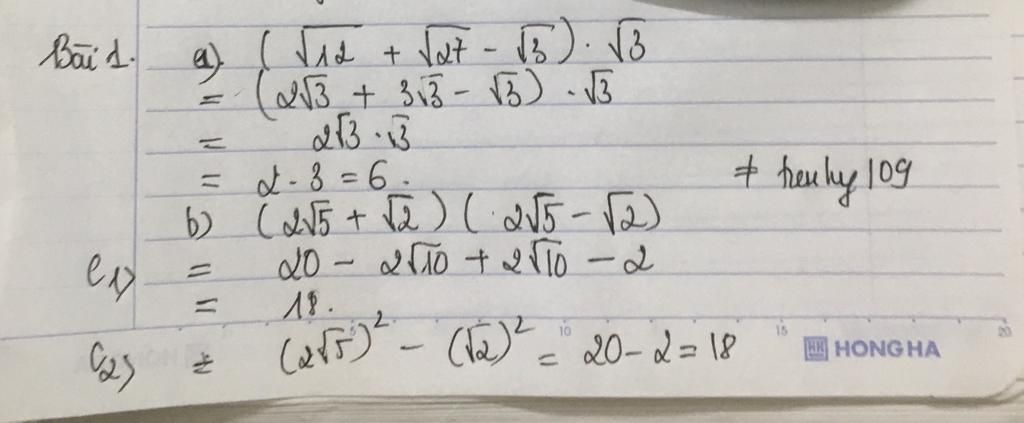 Bài 1. a) (√12 + √27 - √3) . √3
= (2√3 + 3√3 - √3) . √3
= 2√3 . √3
= 2 . 3 = 6 . ≠ trenhy109
b) (2√5 + √2) (2√5 - √2)
C1) = 20 - 2√10 + 2√10 - 2
= 18.
C2) = (2√5)² - (√2)² = 20 - 2 = 18
10 15 20
HK HONG HA